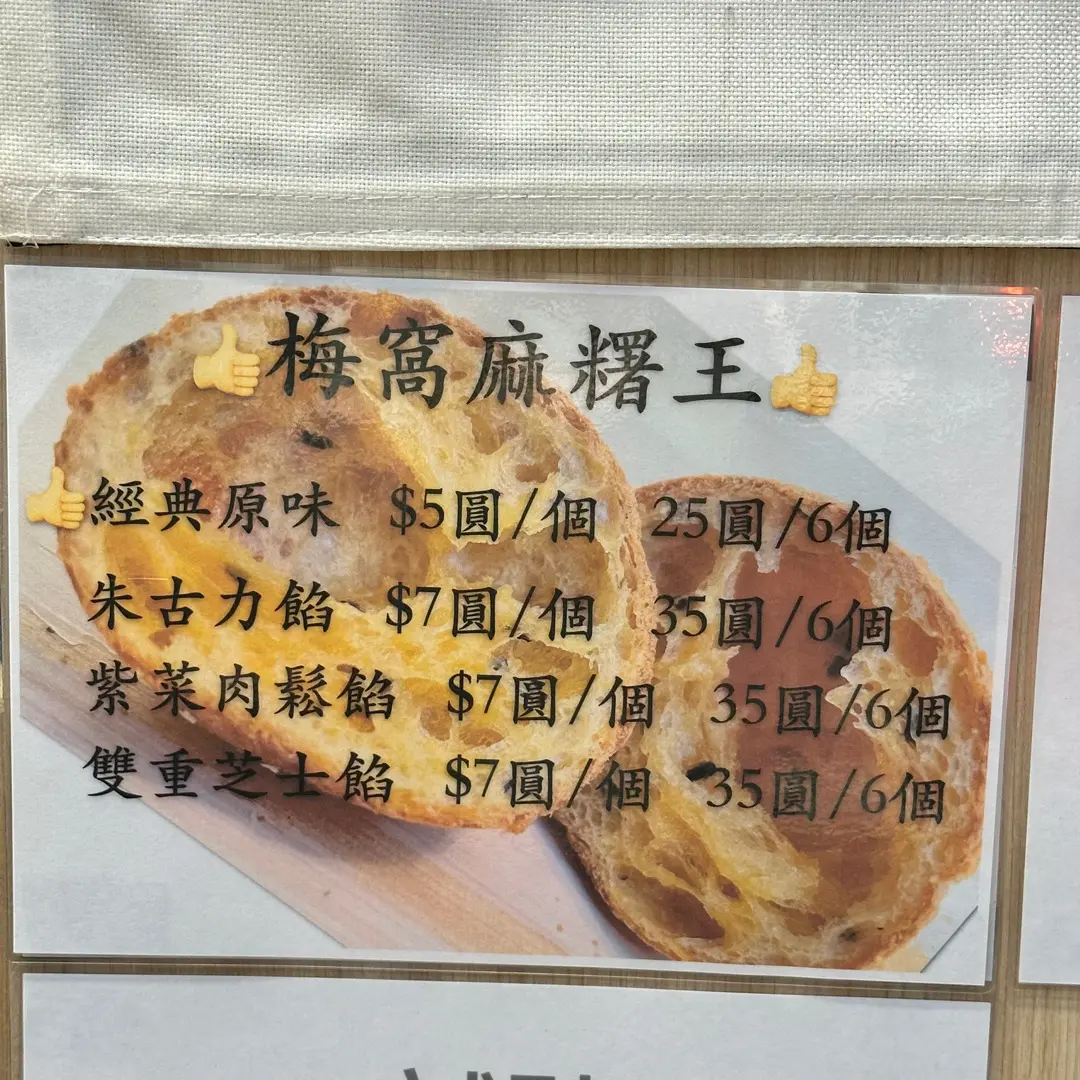 👍梅窩麻糬王👍
👍經典原味 $5圓/個 25圓/6個
朱古力餡 $7圓/個 35圓/6個
紫菜肉鬆餡 $7圓/個 35圓/6個
雙重芝士餡 $7圓/個 35圓/6個